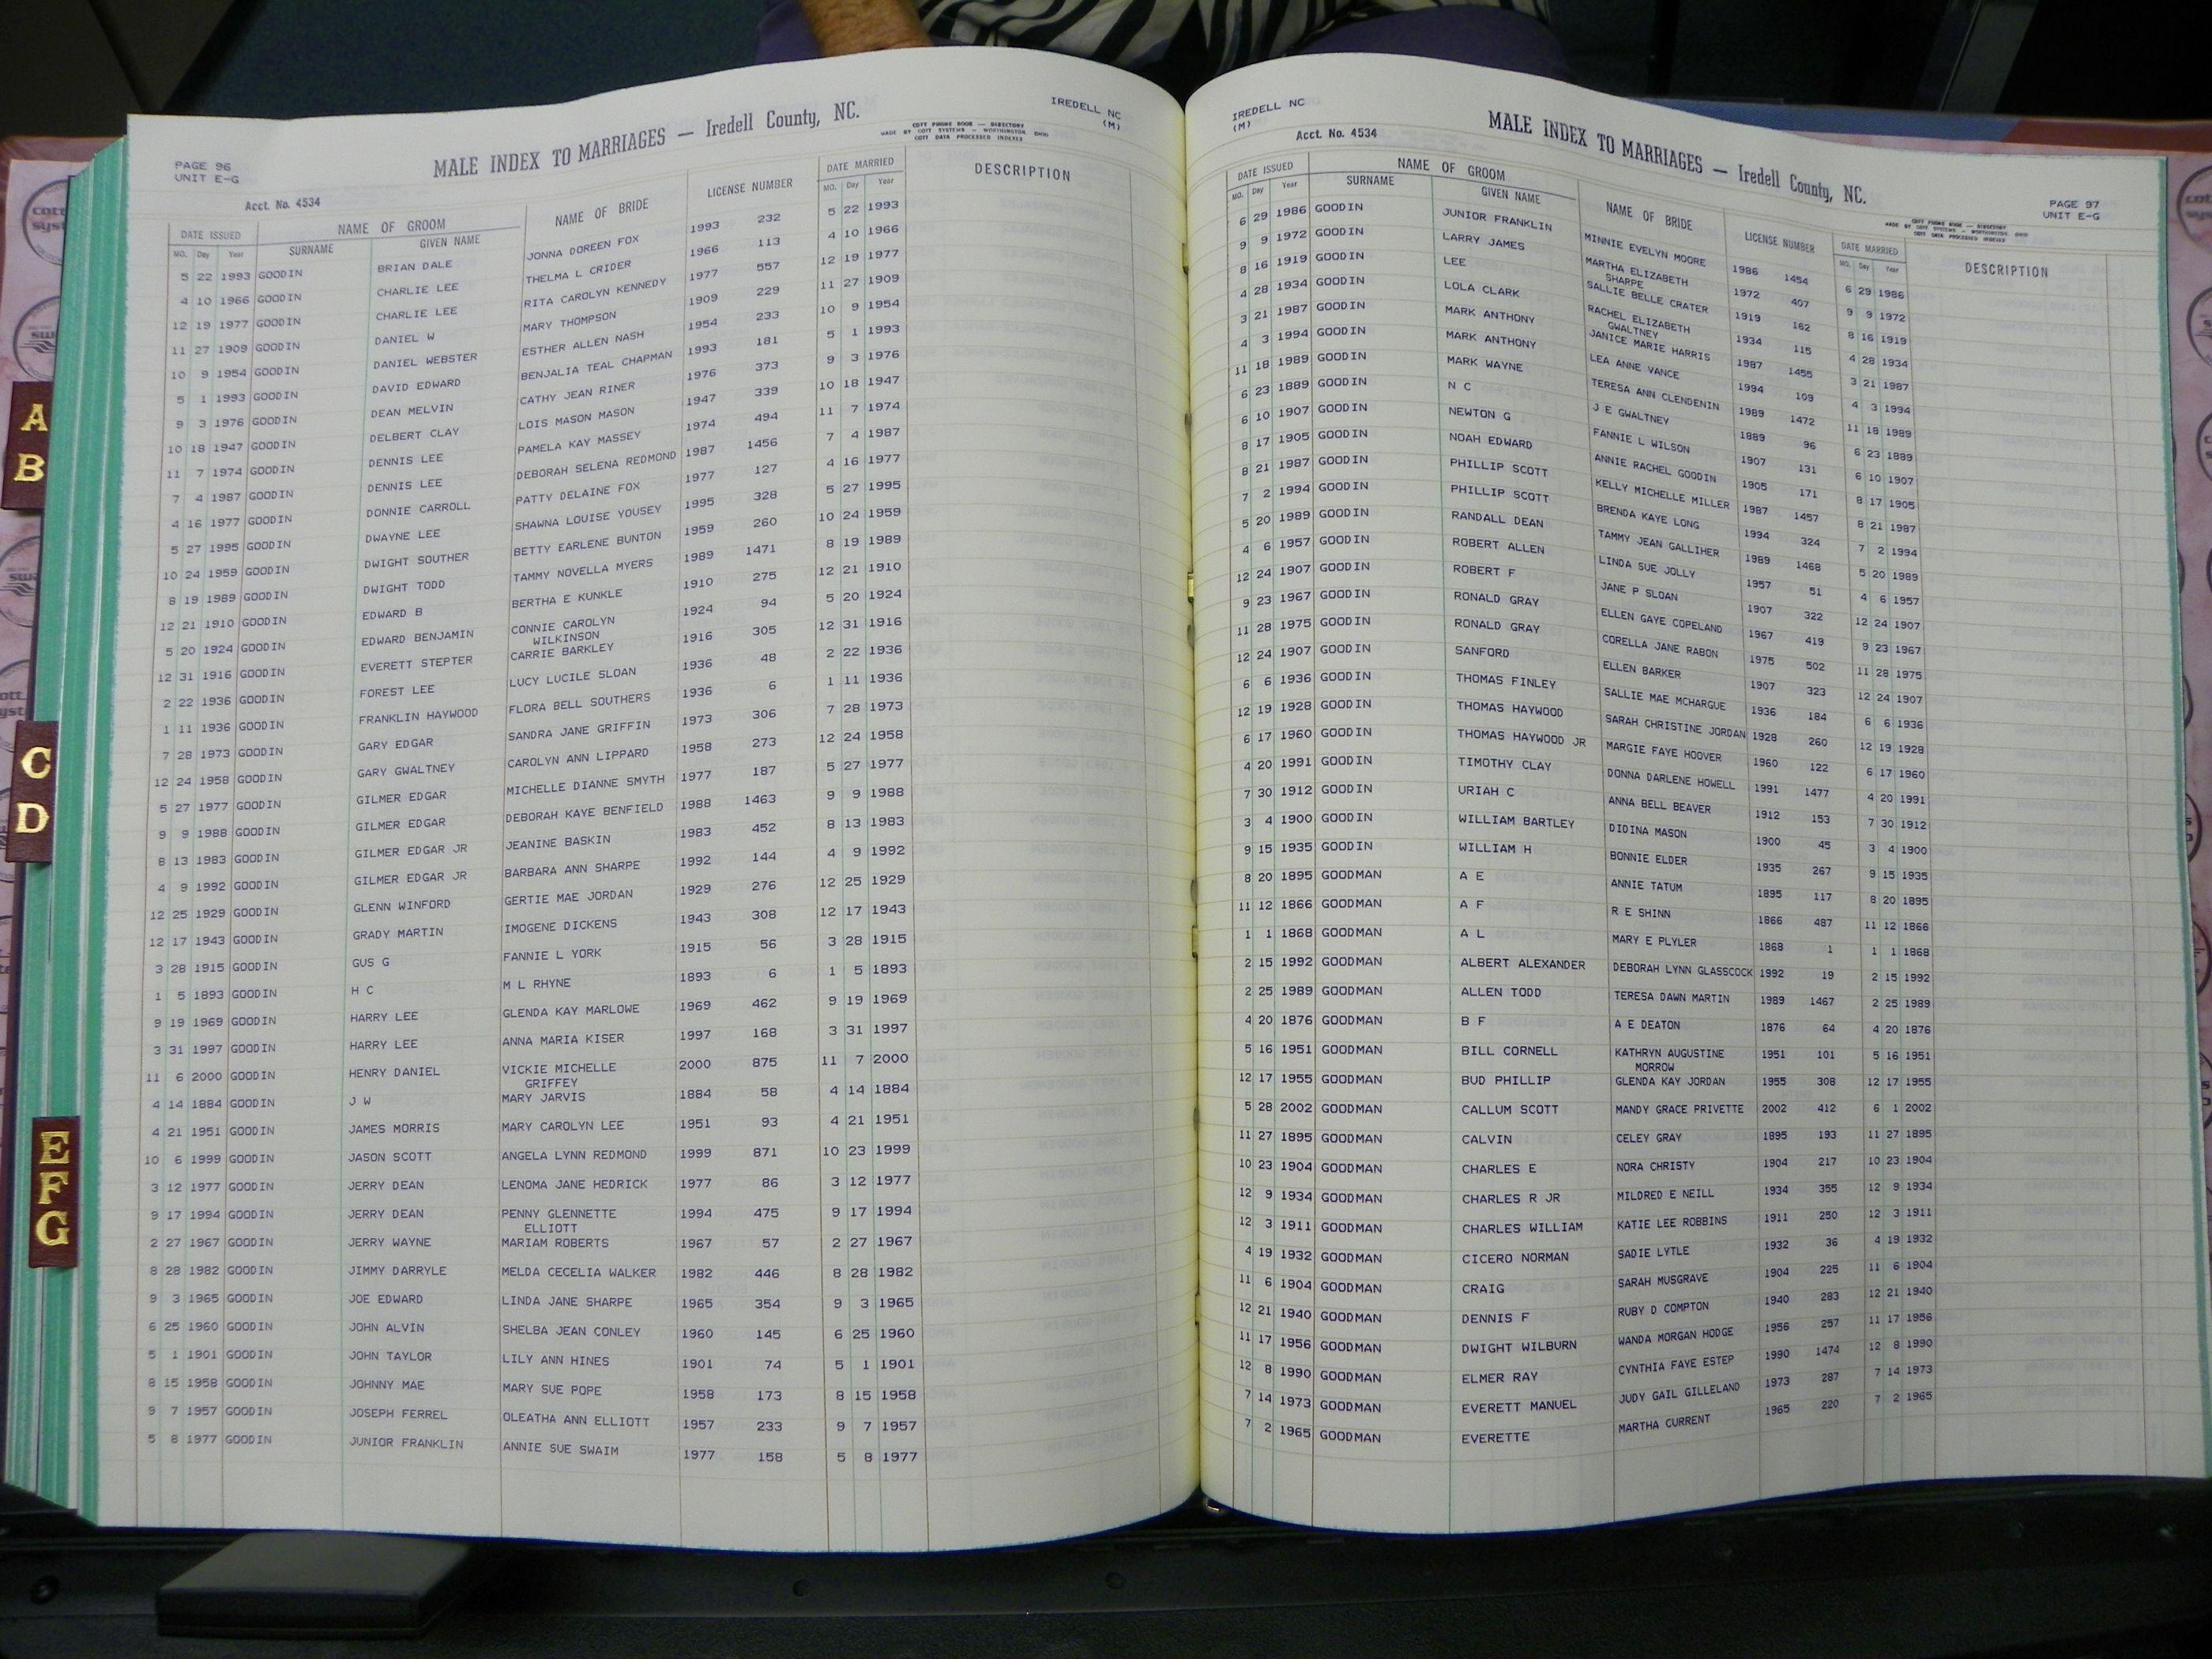 PAGE 96
UNIT E-G
MALE INDEX TO MARRIAGES — Iredell County, NC.
IREDELL NC
(M)
COTT PHONE BOOK — DIRECTORY
MADE BY COTT SYSTEMS — WORTHINGTON OHIO
COTT DATA PROCESSED INDEXES
Acct. No. 4534
DATE ISSUED NAME OF GROOM NAME OF BRIDE LICENSE NUMBER DATE MARRIED DESCRIPTION
MO. Day Year SURNAME GIVEN NAME MO. Day Year
5 22 1993 GOODIN BRIAN DALE JONNA DOREEN FOX 1993 232 5 22 1993
4 10 1966 GOODIN CHARLIE LEE THELMA L CRIDER 1966 113 4 10 1966
12 19 1977 GOODIN CHARLIE LEE RITA CAROLYN KENNEDY 1977 557 12 19 1977
11 27 1909 GOODIN DANIEL W MARY THOMPSON 1909 229 11 27 1909
10 9 1954 GOODIN DANIEL WEBSTER ESTHER ALLEN NASH 1954 233 10 9 1954
5 1 1993 GOODIN DAVID EDWARD BENJALIA TEAL CHAPMAN 1993 181 5 1 1993
9 3 1976 GOODIN DEAN MELVIN CATHY JEAN RINER 1976 373 9 3 1976
10 18 1947 GOODIN DELBERT CLAY LOIS MASON MASON 1947 339 10 18 1947
11 7 1974 GOODIN DENNIS LEE PAMELA KAY MASSEY 1974 494 11 7 1974
7 4 1987 GOODIN DENNIS LEE DEBORAH SELENA REDMOND 1987 1456 7 4 1987
4 16 1977 GOODIN DONNIE CARROLL PATTY DELAINE FOX 1977 127 4 16 1977
5 27 1995 GOODIN DWAYNE LEE SHAWNA LOUISE YOUSEY 1995 328 5 27 1995
10 24 1959 GOODIN DWIGHT SOUTHER BETTY EARLENE BUNTON 1959 260 10 24 1959
8 19 1989 GOODIN DWIGHT TODD TAMMY NOVELLA MYERS 1989 1471 8 19 1989
12 21 1910 GOODIN EDWARD B BERTHA E KUNKLE 1910 275 12 21 1910
5 20 1924 GOODIN EDWARD BENJAMIN CONNIE CAROLYN 1924 94 5 20 1924
WILKINSON
12 31 1916 GOODIN EVERETT STEPTER CARRIE BARKLEY 1916 305 12 31 1916
2 22 1936 GOODIN FOREST LEE LUCY LUCILE SLOAN 1936 48 2 22 1936
1 11 1936 GOODIN FRANKLIN HAYWOOD FLORA BELL SOUTHERS 1936 6 1 11 1936
7 28 1973 GOODIN GARY EDGAR SANDRA JANE GRIFFIN 1973 306 7 28 1973
12 24 1958 GOODIN GARY GWALTNEY CAROLYN ANN LIPPARD 1958 273 12 24 1958
5 27 1977 GOODIN GILMER EDGAR MICHELLE DIANNE SMYTH 1977 187 5 27 1977
9 9 1988 GOODIN GILMER EDGAR DEBORAH KAYE BENFIELD 1988 1463 9 9 1988
8 13 1983 GOODIN GILMER EDGAR JR JEANINE BASKIN 1983 452 8 13 1983
4 9 1992 GOODIN GILMER EDGAR JR BARBARA ANN SHARPE 1992 144 4 9 1992
12 25 1929 GOODIN GLENN WINFORD GERTIE MAE JORDAN 1929 276 12 25 1929
12 17 1943 GOODIN GRADY MARTIN IMOGENE DICKENS 1943 308 12 17 1943
3 28 1915 GOODIN GUS G FANNIE L YORK 1915 56 3 28 1915
1 5 1893 GOODIN H C M L RHYNE 1893 6 1 5 1893
9 19 1969 GOODIN HARRY LEE GLENDA KAY MARLOWE 1969 462 9 19 1969
3 31 1997 GOODIN HARRY LEE ANNA MARIA KISER 1997 168 3 31 1997
11 6 2000 GOODIN HENRY DANIEL VICKIE MICHELLE 2000 875 11 7 2000
GRIFFEY
4 14 1884 GOODIN J W MARY JARVIS 1884 58 4 14 1884
4 21 1951 GOODIN JAMES MORRIS MARY CAROLYN LEE 1951 93 4 21 1951
10 6 1999 GOODIN JASON SCOTT ANGELA LYNN REDMOND 1999 871 10 23 1999
3 12 1977 GOODIN JERRY DEAN LENOMA JANE HEDRICK 1977 86 3 12 1977
9 17 1994 GOODIN JERRY DEAN PENNY GLENNETTE 1994 475 9 17 1994
ELLIOTT
2 27 1967 GOODIN JERRY WAYNE MARIAM ROBERTS 1967 57 2 27 1967
8 28 1982 GOODIN JIMMY DARRYLE MELDA CECELIA WALKER 1982 446 8 28 1982
9 3 1965 GOODIN JOE EDWARD LINDA JANE SHARPE 1965 354 9 3 1965
6 25 1960 GOODIN JOHN ALVIN SHELBA JEAN CONLEY 1960 145 6 25 1960
5 1 1901 GOODIN JOHN TAYLOR LILY ANN HINES 1901 74 5 1 1901
8 15 1958 GOODIN JOHNNY MAE MARY SUE POPE 1958 173 8 15 1958
9 7 1957 GOODIN JOSEPH FERREL OLEATHA ANN ELLIOTT 1957 233 9 7 1957
5 8 1977 GOODIN JUNIOR FRANKLIN ANNIE SUE SWAIM 1977 158 5 8 1977
IREDELL NC
(M)
MALE INDEX TO MARRIAGES — Iredell County, NC.
PAGE 97
UNIT E-G
Acct. No. 4534
COTT PHONE BOOK — DIRECTORY
MADE BY COTT SYSTEMS — WORTHINGTON OHIO
COTT DATA PROCESSED INDEXES
DATE ISSUED NAME OF GROOM NAME OF BRIDE LICENSE NUMBER DATE MARRIED DESCRIPTION
MO. Day Year SURNAME GIVEN NAME MO. Day Year
6 29 1986 GOODIN JUNIOR FRANKLIN MINNIE EVELYN MOORE 1986 1454 6 29 1986
9 9 1972 GOODIN LARRY JAMES MARTHA ELIZABETH 1972 407 9 9 1972
SHARPE
8 16 1919 GOODIN LEE SALLIE BELLE CRATER 1919 162 8 16 1919
4 28 1934 GOODIN LOLA CLARK RACHEL ELIZABETH 1934 115 4 28 1934
GWALTNEY
3 21 1987 GOODIN MARK ANTHONY JANICE MARIE HARRIS 1987 1455 3 21 1987
4 3 1994 GOODIN MARK ANTHONY LEA ANNE VANCE 1994 109 4 3 1994
11 18 1989 GOODIN MARK WAYNE TERESA ANN CLENDENIN 1989 1472 11 18 1989
6 23 1889 GOODIN N C J E GWALTNEY 1889 96 6 23 1889
6 10 1907 GOODIN NEWTON G FANNIE L WILSON 1907 131 6 10 1907
8 17 1905 GOODIN NOAH EDWARD ANNIE RACHEL GOODIN 1905 171 8 17 1905
8 21 1987 GOODIN PHILLIP SCOTT KELLY MICHELLE MILLER 1987 1457 8 21 1987
7 2 1994 GOODIN PHILLIP SCOTT BRENDA KAYE LONG 1994 324 7 2 1994
5 20 1989 GOODIN RANDALL DEAN TAMMY JEAN GALLIHER 1989 1468 5 20 1989
4 6 1957 GOODIN ROBERT ALLEN LINDA SUE JOLLY 1957 51 4 6 1957
12 24 1907 GOODIN ROBERT F JANE P SLOAN 1907 322 12 24 1907
9 23 1967 GOODIN RONALD GRAY ELLEN GAYE COPELAND 1967 419 9 23 1967
11 28 1975 GOODIN RONALD GRAY CORELLA JANE RABON 1975 502 11 28 1975
12 24 1907 GOODIN SANFORD ELLEN BARKER 1907 323 12 24 1907
6 6 1936 GOODIN THOMAS FINLEY SALLIE MAE MCHARGUE 1936 184 6 6 1936
12 19 1928 GOODIN THOMAS HAYWOOD SARAH CHRISTINE JORDAN 1928 260 12 19 1928
6 17 1960 GOODIN THOMAS HAYWOOD JR MARGIE FAYE HOOVER 1960 122 6 17 1960
4 20 1991 GOODIN TIMOTHY CLAY DONNA DARLENE HOWELL 1991 1477 4 20 1991
7 30 1912 GOODIN URIAH C ANNA BELL BEAVER 1912 153 7 30 1912
3 4 1900 GOODIN WILLIAM BARTLEY DIDINA MASON 1900 45 3 4 1900
9 15 1935 GOODIN WILLIAM H BONNIE ELDER 1935 267 9 15 1935
8 20 1895 GOODMAN A E ANNIE TATUM 1895 117 8 20 1895
11 12 1866 GOODMAN A F R E SHINN 1866 487 11 12 1866
1 1 1868 GOODMAN A L MARY E PLYLER 1868 1 1 1 1868
2 15 1992 GOODMAN ALBERT ALEXANDER DEBORAH LYNN GLASSCOCK 1992 19 2 15 1992
2 25 1989 GOODMAN ALLEN TODD TERESA DAWN MARTIN 1989 1467 2 25 1989
4 20 1876 GOODMAN B F A E DEATON 1876 64 4 20 1876
5 16 1951 GOODMAN BILL CORNELL KATHRYN AUGUSTINE 1951 101 5 16 1951
MORROW
12 17 1955 GOODMAN BUD PHILLIP GLENDA KAY JORDAN 1955 308 12 17 1955
5 28 2002 GOODMAN CALLUM SCOTT MANDY GRACE PRIVETTE 2002 412 6 1 2002
11 27 1895 GOODMAN CALVIN CELEY GRAY 1895 193 11 27 1895
10 23 1904 GOODMAN CHARLES E NORA CHRISTY 1904 217 10 23 1904
12 9 1934 GOODMAN CHARLES R JR MILDRED E NEILL 1934 355 12 9 1934
12 3 1911 GOODMAN CHARLES WILLIAM KATIE LEE ROBBINS 1911 250 12 3 1911
4 19 1932 GOODMAN CICERO NORMAN SADIE LYTLE 1932 36 4 19 1932
11 6 1904 GOODMAN CRAIG SARAH MUSGRAVE 1904 225 11 6 1904
12 21 1940 GOODMAN DENNIS F RUBY D COMPTON 1940 283 12 21 1940
11 17 1956 GOODMAN DWIGHT WILBURN WANDA MORGAN HODGE 1956 257 11 17 1956
12 8 1990 GOODMAN ELMER RAY CYNTHIA FAYE ESTEP 1990 1474 12 8 1990
7 14 1973 GOODMAN EVERETT MANUEL JUDY GAIL GILLELAND 1973 287 7 14 1973
7 2 1965 GOODMAN EVERETTE MARTHA CURRENT 1965 220 7 2 1965
A
B
C
D
E
F
G